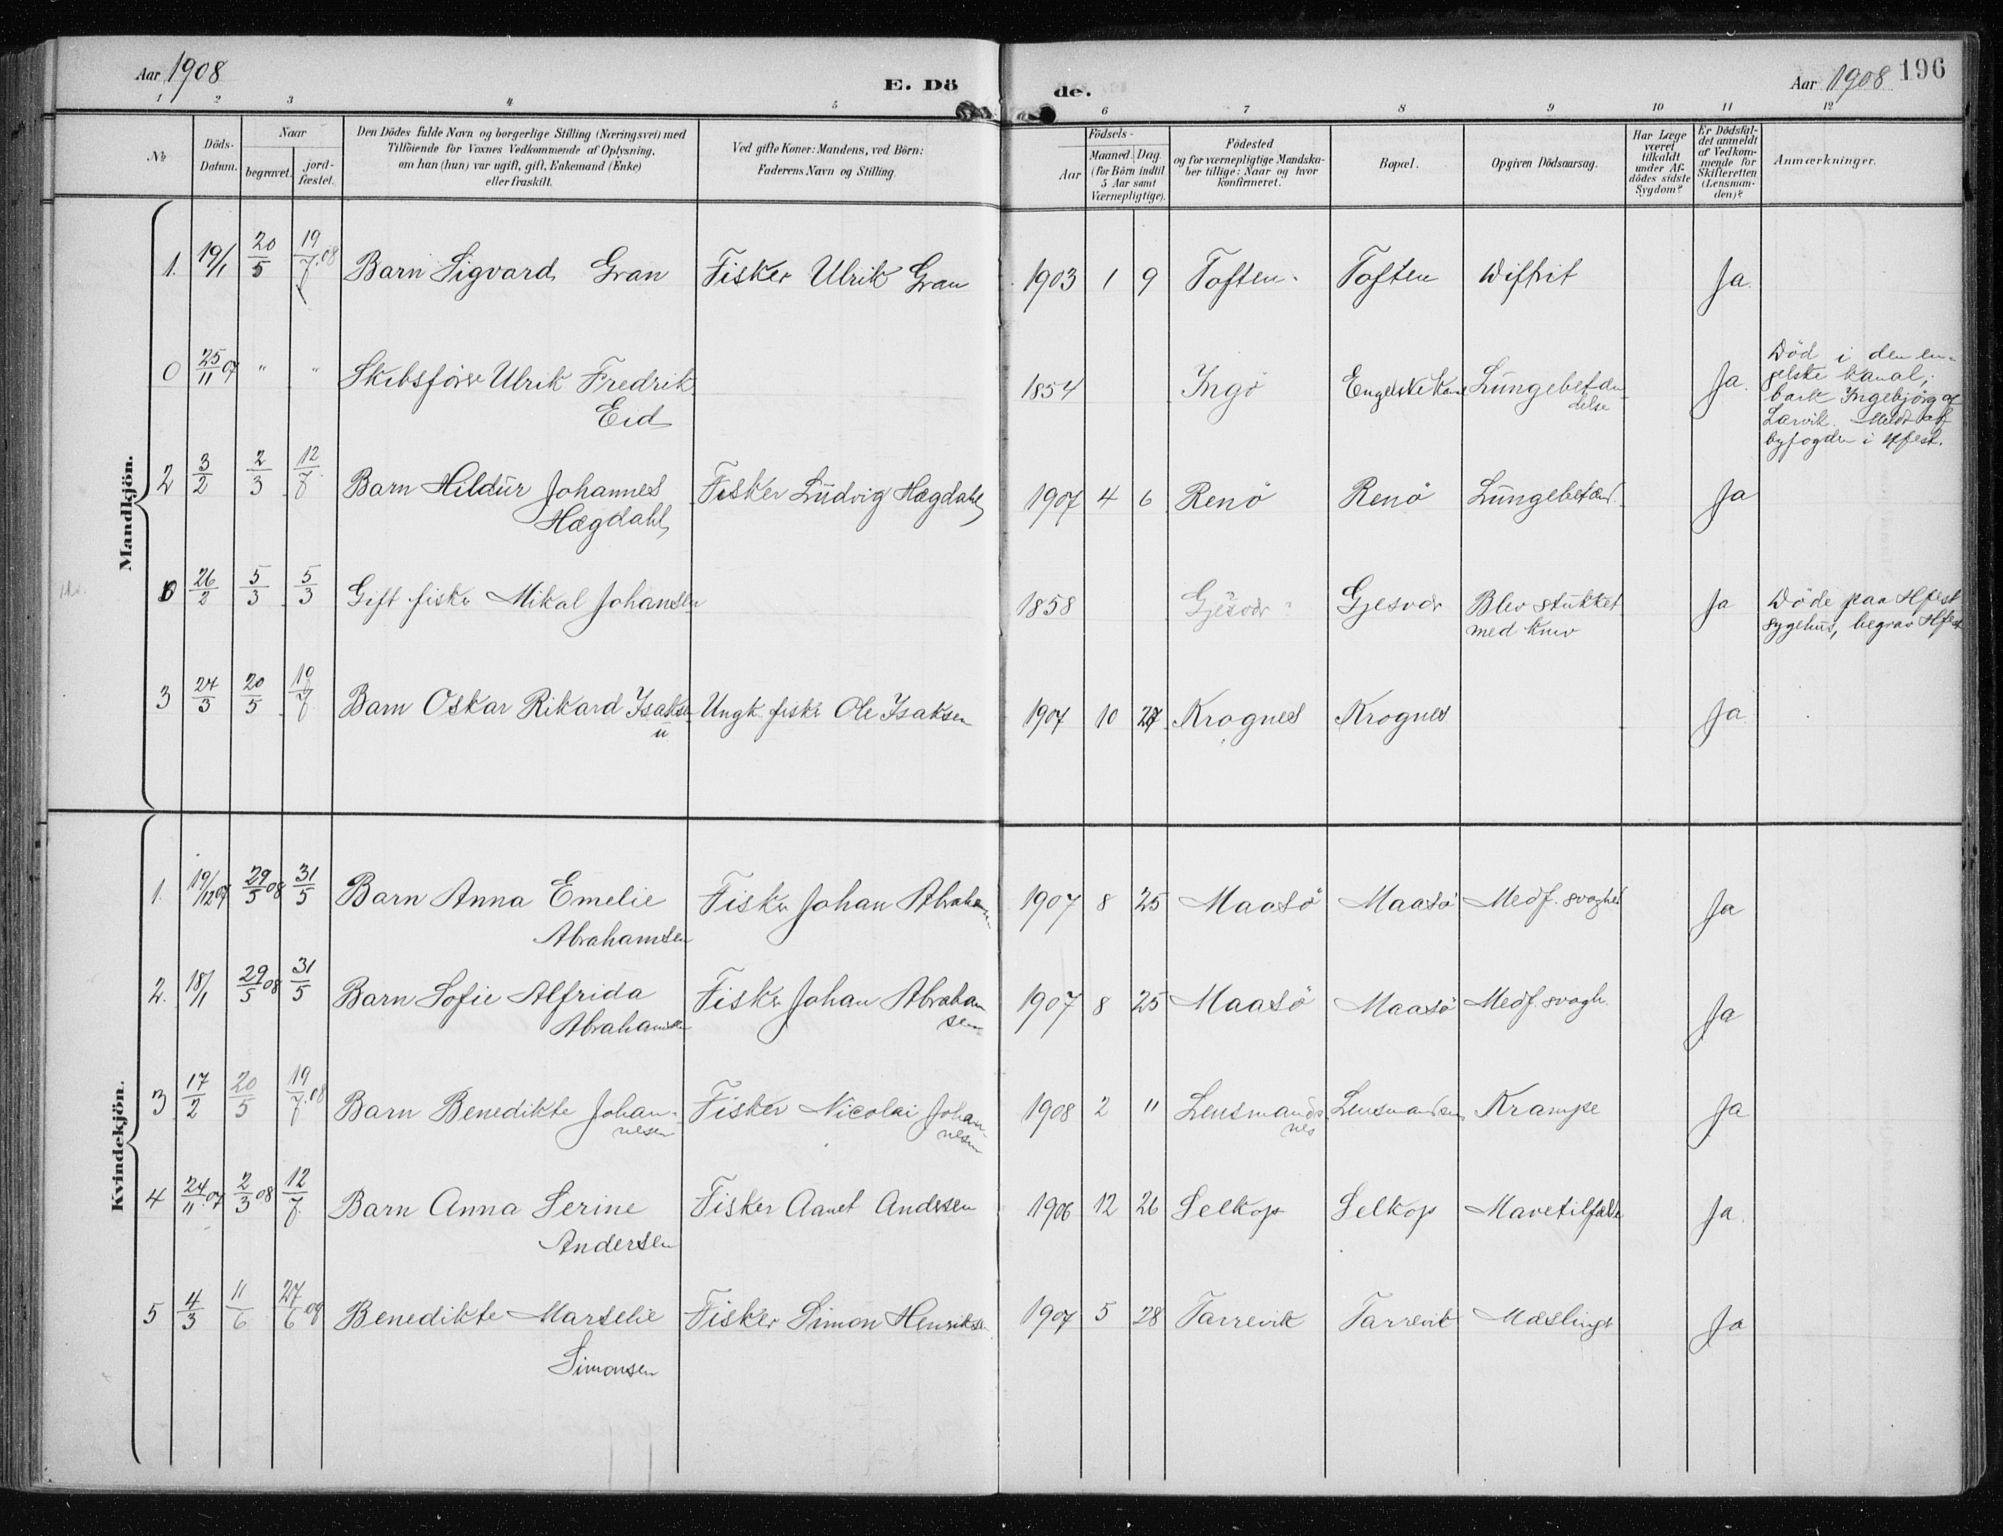 Aar 1908
E. Dö
de.
Aar 1908 196
1 2 3 4 5 6 7 8 9 10 11 12
№
Döds-
Datum.
Naar
begravet.
jord-
fæstet.
Den Dödes fulde Navn og borgerlige Stilling (Næringsvei) med
Tilföiende for Voxnes Vedkommende af Oplysning,
om han (hun) var ugift, gift, Enkemand (Enke)
eller fraskilt.
Ved gifte Koner: Mandens, ved Börn:
Faderens Navn og Stilling.
Födsels-
Aar
Maaned. Dag.
(for Börn indtil
5 Aar samt
Værnepligtige).
Födested
og for værnepligtige Mandska-
ber tillige: Naar og hvor
konfirmeret.
Bopæl.
Opgiven Dödsaarsag.
Har Læge
været
tilkaldt
under Af-
dødes sidste
Sygdom?
Er Dödsfal-
det anmeldt
af Vedkom-
mende for
Skifteretten
(Lensman-
den)?
Anmærkninger.
Mandkjön.
1. 19/1 20/5 19/7.08 Barn Sigvard Gran Fisker Ulrik Gran 1903 1 9 Toften. Toften Diftrit Ja.
0 25/11 07 " " Skibsförer Ulrik Fredrik
Eid
1854 Ingö Engelske Kan Lungebetæn-
delse
Ja.
Död i den en-
gelske kanal,
bark Ingebjörg af
Larvik. Meldt af
byfogden i Hfest.
2 3/2 2/3 12/7 Barn Hildur Johannes
Hægdahl
Fisker Ludvig Hægdahl 1907 4 6 Renö Renö Lungebetænd. Ja
0 26/2 5/3 5/3 Gift fisker Mikal Johansen 1858 Gjesvær Gjesvær Blev stukket
med kniv
Ja
Döde paa Hfest
sygehus, begrav Hfest
3 24/3 20/5 19/7 Barn Oskar Rikard Isaksen
u
Ungk. fisker Ole Isaksen 1907 10 27 Krognes Krognes Ja.
Kvindekjön.
1. 19/12 07 29/5 08 31/5 Barn Anna Emelie
Abrahamsen
Fisker Johan Abraham 1907 8 25 Maasö Maasö Medf. svaghed Ja
2. 18/1 29/5 08 31/5 Barn Sofie Alfrida
Abrahamsen
Fisker Johan Abraham
sen
1907 8 25 Maasö Maasö Medf. svagh. Ja
3 17/2 20/5 19/7.08 Barn Benedikte Johan-
nesen
Fisker Nicolai Johan-
nesen
1908 2 " Lensmands
nes
Lensmandsn Krampe Ja
4 24/11.07 2/3 08 12/7 Barn Anna Serine
Andersen
Fisker Aanet Andersen 1906 12 26 Selkop Selkop Mavetilfælde Ja.
5 4/3 11/6 27/6 09 Benedikte Marselie
Simonsen
Fisker Simon Henriksen 1907 5 28 Tarrevik Tarrevik Mæslinge Ja